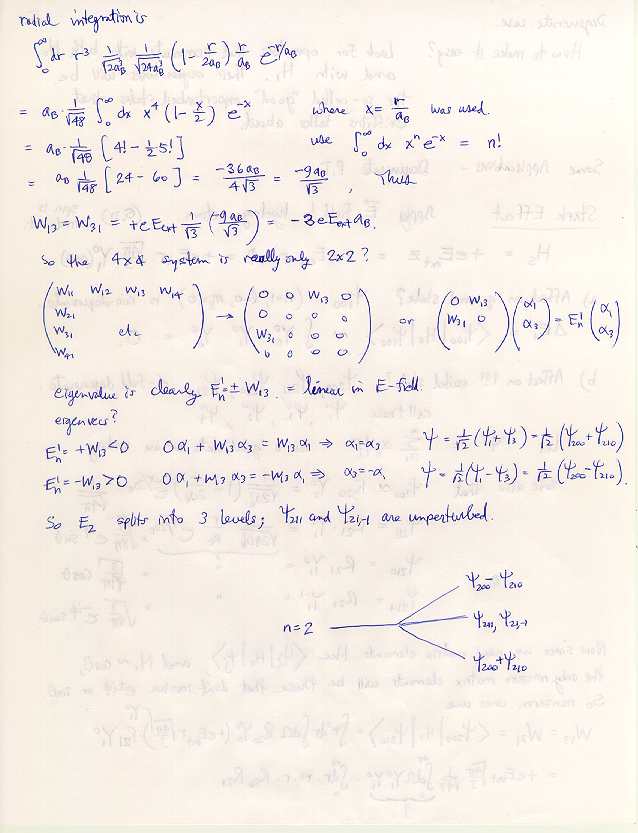 radial integration is
∫₀^∞ dr r³ 1/√(2a_B³) 1/√(24a_B³) (1 - r/2a_B) r/a_B e^(-r/a_B)
= a_B · 1/√48 ∫₀^∞ dx x⁴ (1 - x/2) e^(-x) where x = r/a_B was used.
= a_B · 1/√48 [4! - ½5!] use ∫₀^∞ dx xⁿ e^(-x) = n!
= a_B 1/√48 [24 - 60] = -36a_B/4√3 = -9a_B/√3 , Thus
W₁₃ = W₃₁ = +eE_ext 1/√3 (-9a_B/√3) = -3eE_ext a_B.
So the 4x4 system is really only 2x2?
(W₁₁ W₁₂ W₁₃ W₁₄ → (0 0 W₁₃ 0 or (0 W₁₃ (α₁ = Eₙ' (α₁
W₂₁ 0 0 0 0 W₃₁ 0) α₃) α₃)
W₃₁ etc W₃₁ 0 0 0
W₄₁) 0 0 0 0)
eigenvalue is clearly Eₙ' = ± W₁₃. = linear in E-field.
eigenvecs?
Eₙ' = +W₁₃ < 0 0α₁ + W₁₃α₃ = W₁₃α₁ ⇒ α₁=α₃ Ψ = 1/√2 (Ψ₁+Ψ₃) = 1/√2 (Ψ₂₀₀+Ψ₂₁₀)
Eₙ' = -W₁₃ > 0 0α₁ + W₁₃α₃ = -W₁₃α₁ ⇒ α₃=-α₁ Ψ = 1/√2 (Ψ₁-Ψ₃) = 1/√2 (Ψ₂₀₀-Ψ₂₁₀).
So E₂ splits into 3 levels; Ψ₂₁₁ and Ψ₂,₁,₋₁ are unperturbed.
Ψ₂₀₀ - Ψ₂₁₀
n=2 Ψ₂₁₁, Ψ₂,₁,₋₁
Ψ₂₀₀ + Ψ₂₁₀